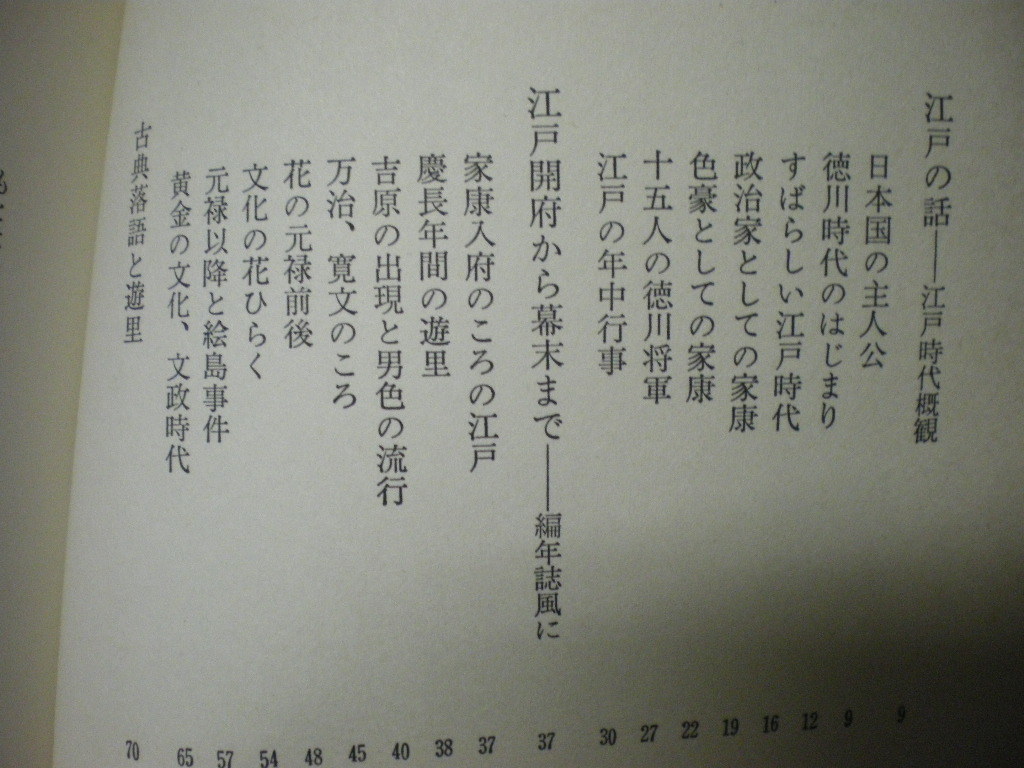 江戸の話——江戸時代概観 9
日本国の主人公 9
徳川時代のはじまり 12
すばらしい江戸時代 16
政治家としての家康 19
色豪としての家康 22
十五人の徳川将軍 27
江戸の年中行事 30
江戸開府から幕末まで——編年誌風に 37
家康入府のころの江戸 37
慶長年間の遊里 38
吉原の出現と男色の流行 40
万治、寛文のころ 45
花の元禄前後 48
文化の花ひらく 54
元禄以降と絵島事件 57
黄金の文化、文政時代 65
古典落語と遊里 70